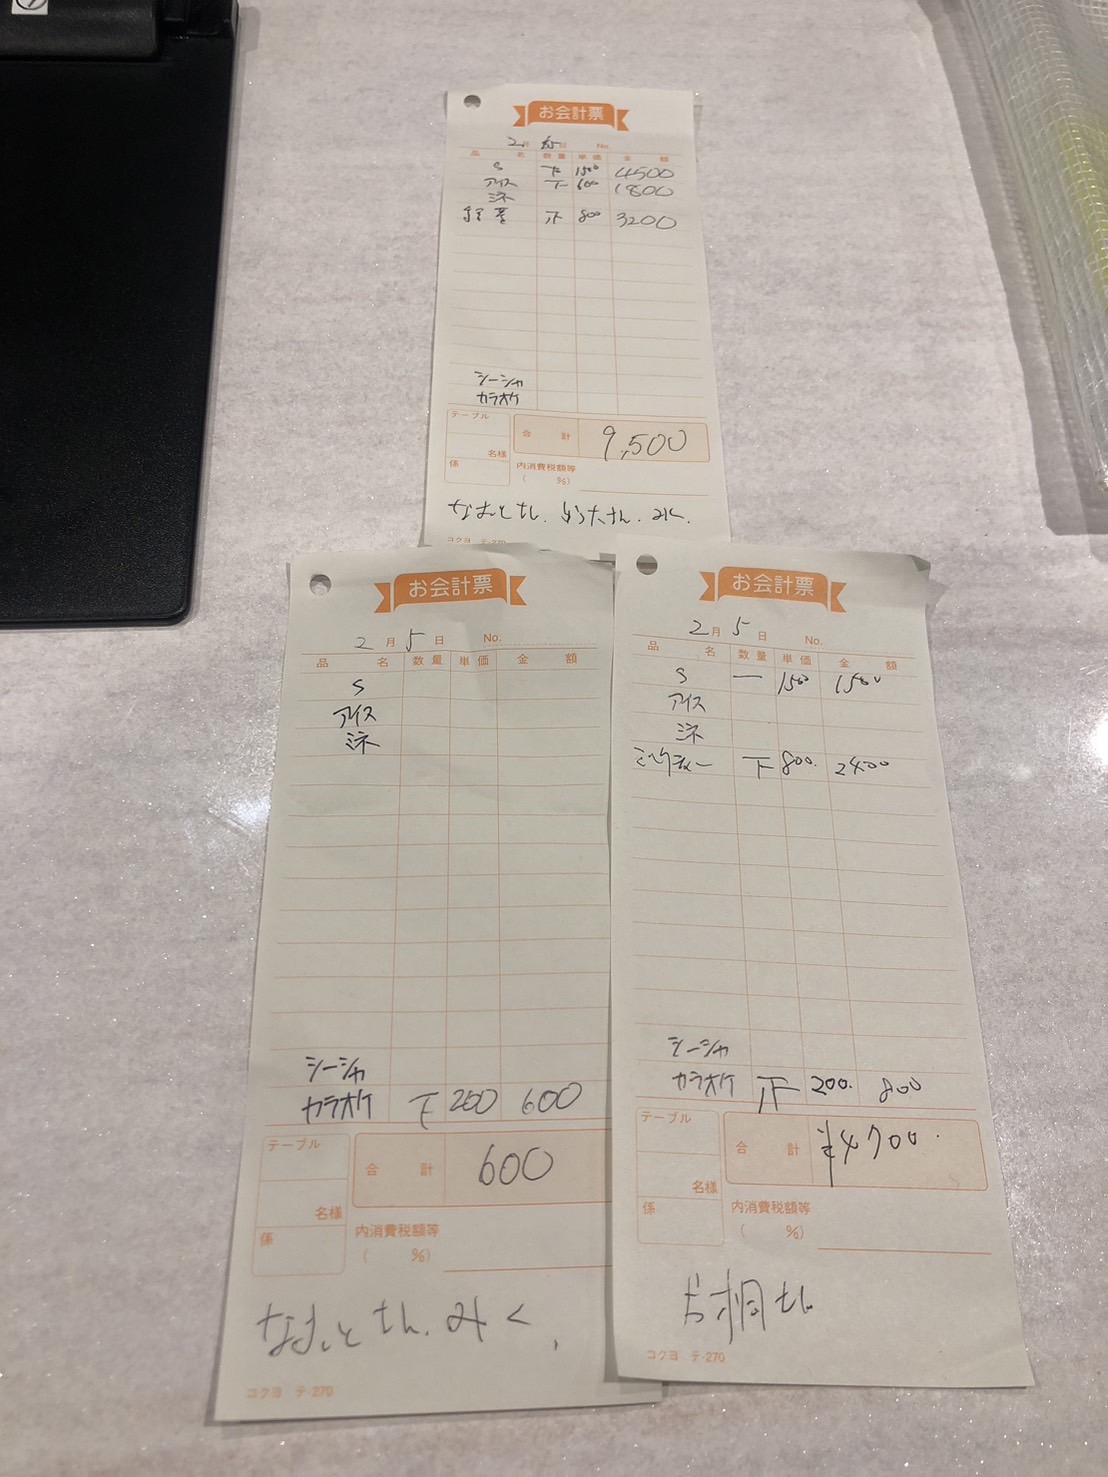 お会計票
2月 5日 No.
品 名 数量 単価 金 額
S 下 1500 4500
アイス 下 600 1800
ミネ
正 800 3200
シーシャ
カラオケ
テーブル
合 計 9,500
名様
係 内消費税額等
( %)
なおとさん. さん. みく.
コクヨ テ-270
お会計票
2月 5日 No.
品 名 数量 単価 金 額
S
アイス
ミネ
シーシャ
カラオケ 下 200 600
テーブル
合 計 600
名様
係 内消費税額等
( %)
なおとさん. みく.
コクヨ テ-270
お会計票
2月 5日 No.
品 名 数量 単価 金 額
S 一 1500 1500
アイス
ミネ
ミルクティー 下 800. 2400
シーシャ
カラオケ 正 200. 800
テーブル
合 計 ¥4700.
名様
係 内消費税額等
( %)
片桐さん
コクヨ テ-270